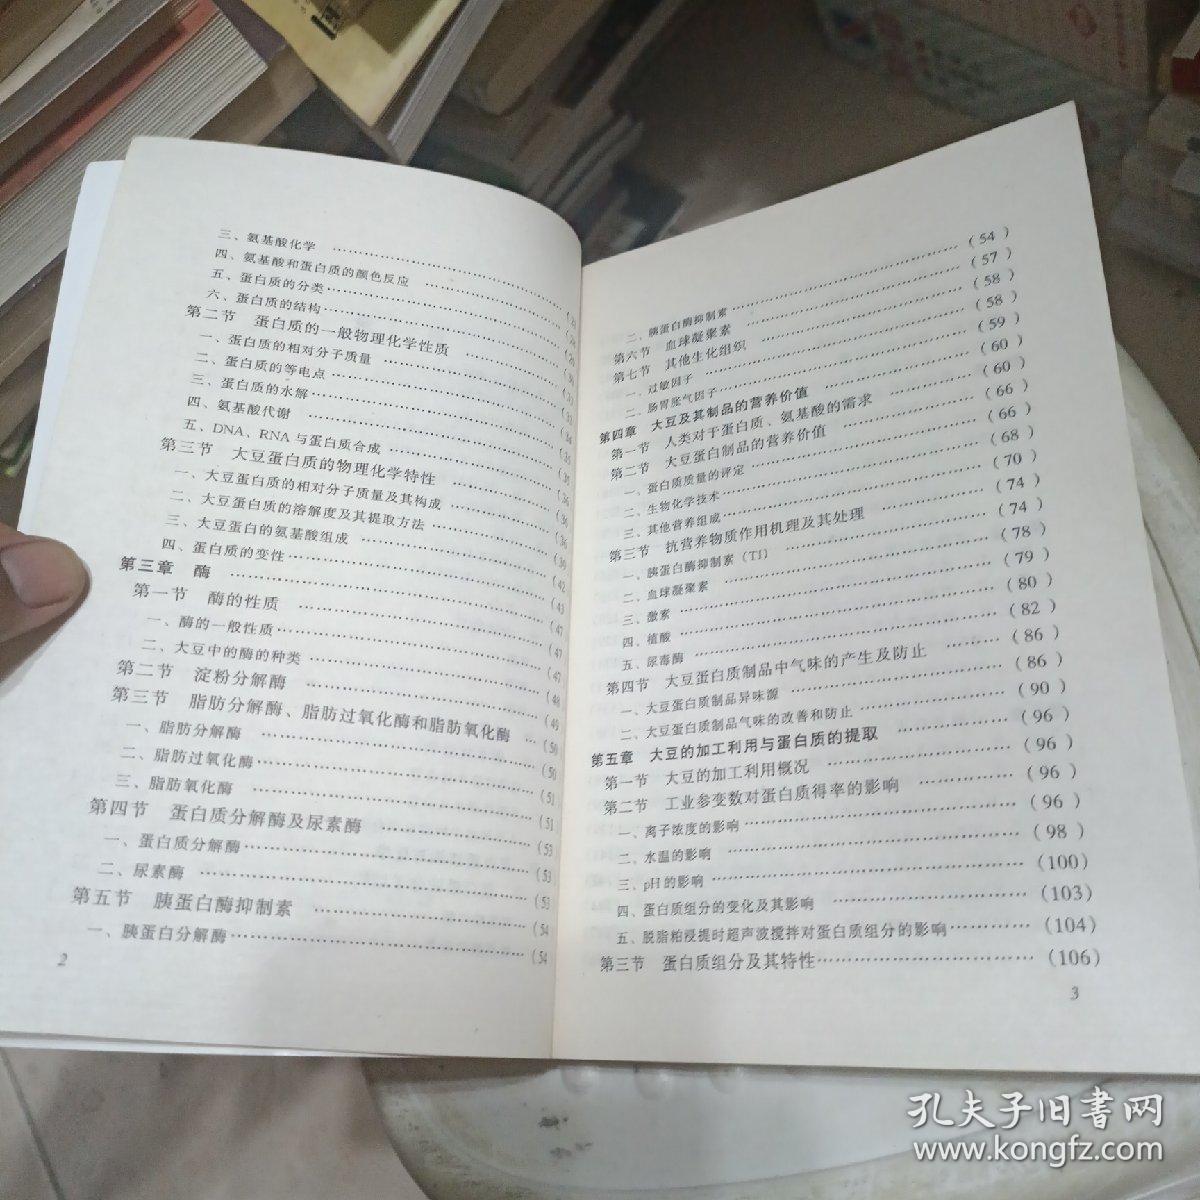 三、氨基酸化学
四、氨基酸和蛋白质的颜色反应
五、蛋白质的分类
六、蛋白质的结构
第二节 蛋白质的一般物理化学性质
一、蛋白质的相对分子质量
二、蛋白质的等电点
三、蛋白质的水解
四、氨基酸代谢
五、DNA、RNA与蛋白质合成
第三节 大豆蛋白质的物理化学特性
一、大豆蛋白质的相对分子质量及其构成
二、大豆蛋白质的溶解度及其提取方法
三、大豆蛋白的氨基酸组成
四、蛋白质的变性
第三章 酶
第一节 酶的性质
一、酶的一般性质
二、大豆中的酶的种类
第二节 淀粉分解酶
第三节 脂肪分解酶、脂肪过氧化酶和脂肪氧化酶
一、脂肪分解酶
二、脂肪过氧化酶
三、脂肪氧化酶
第四节 蛋白质分解酶及尿素酶
一、蛋白质分解酶
二、尿素酶
第五节 胰蛋白酶抑制素
一、胰蛋白分解酶
2
二、胰蛋白酶抑制素 (54)
第六节 血球凝聚素 (57)
第七节 其他生化组织 (58)
一、过敏因子 (58)
二、肠胃胀气因子 (59)
第四章 大豆及其制品的营养价值 (60)
第一节 人类对于蛋白质、氨基酸的需求 (60)
第二节 大豆蛋白制品的营养价值 (66)
一、蛋白质质量的评定 (66)
二、生物化学技术 (68)
三、其他营养组成 (70)
第三节 抗营养物质作用机理及其处理 (74)
一、胰蛋白酶抑制素(TI) (74)
二、血球凝聚素 (78)
三、激素 (79)
四、植酸 (80)
五、尿毒酶 (82)
第四节 大豆蛋白质制品中气味的产生及防止 (86)
一、大豆蛋白质制品异味源 (86)
二、大豆蛋白质制品气味的改善和防止 (90)
第五章 大豆的加工利用与蛋白质的提取 (96)
第一节 大豆的加工利用概况 (96)
第二节 工业参变数对蛋白质得率的影响 (96)
一、离子浓度的影响 (96)
二、水温的影响 (98)
三、pH的影响 (100)
四、蛋白质组分的变化及其影响 (103)
五、脱脂粕浸提时超声波搅拌对蛋白质组分的影响 (104)
第三节 蛋白质组分及其特性 (106)
3
孔夫子旧书网
www.kongfz.com